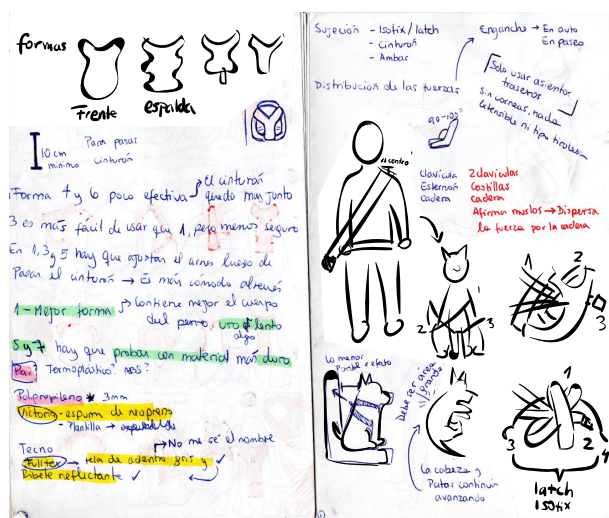 formas
Frente
espalda
10 cm
mínimo
Para pasar
cinturón
Forma 4 y 6 poco efectiva
El cinturón
quedó muy junto
3 es más fácil de usar que 1, pero menos seguro
En 1, 3 y 5 hay que ajustar el arnés luego de
Pasar el cinturón → Es más cómodo al revés
1 - Mejor forma
Contiene mejor el cuerpo
del perro, uso + lento
algo
5 y 7 hay que probar con material más duro
Termoplástico?
Polipropileno * 3mm
Victoria - espuma de neopreno
- Plantilla →
Tecno
No me sé el nombre
Fulltex → tela de adentro gris y ✓
Ribete reflectante ✓
Sujeción - Isofix/latch
- Cinturón
- Ambas
Enganche → En auto
En paseo
Distribución de las fuerzas
Solo usar asientos
traseros
sin correas, nada
extensible ni tipo tirolesa
90-100°
al centro
Clavícula
Esternón
Cadera
2 clavículas
Costillas
cadera
Afirma muslos → Dispersa
la fuerza por la cadera
2
3
1
2
3
Lo menor
Posible x efecto
Debe ser área
grande
La cabeza y
Patas continúan
avanzando
1
3
2
4
latch
isofix